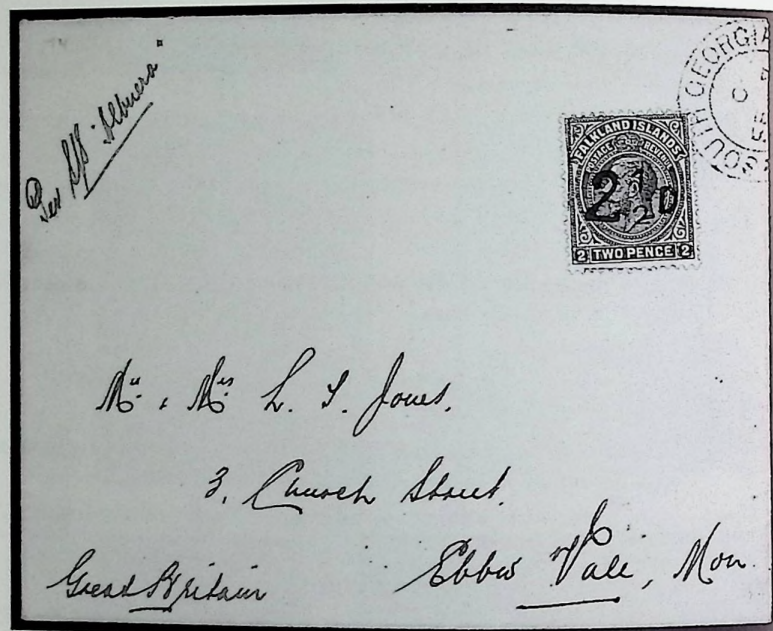 Per S/S "Albuera"
SOUTH GEORGIA
FALKLAND ISLANDS
POSTAGE REVENUE
2½D
2 TWO PENCE 2
Mr. & Mrs. L. T. Jones.
3, Church Street.
Ebbw Vale, Mon.
Great Britain